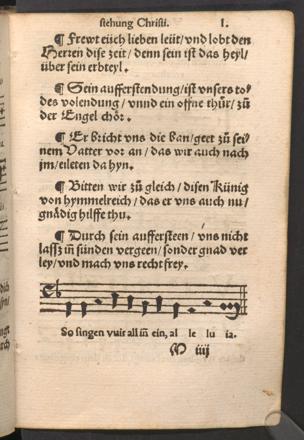 stehung Christi. l.
¶ Frewt eüch lieben leüt/vnd lobt den
Herren dise zeit/denn sein ist das heyl/
über sein erbteyl.
¶ Sein aufferstendung/ist vnsers to/
des volendung/vnnd ein offne thür/zů
der Engel chör.
¶ Er bricht vns die ban/geet zů sei/
nem Vatter vor an/das wir auch nach
jm/eileten dahyn.
¶ Bitten wir zů gleich/disen Künig
von hymmelreich/das er vns auch nu/
gnådig hilffe thu.
¶ Durch sein auffersteen/vns nicht
lassz in̄ sünden vergeen/sonder gnad ver
ley/vnd mach vns recht frey.
So singen vvir all in̄ ein, al le lu ia.
M iiij